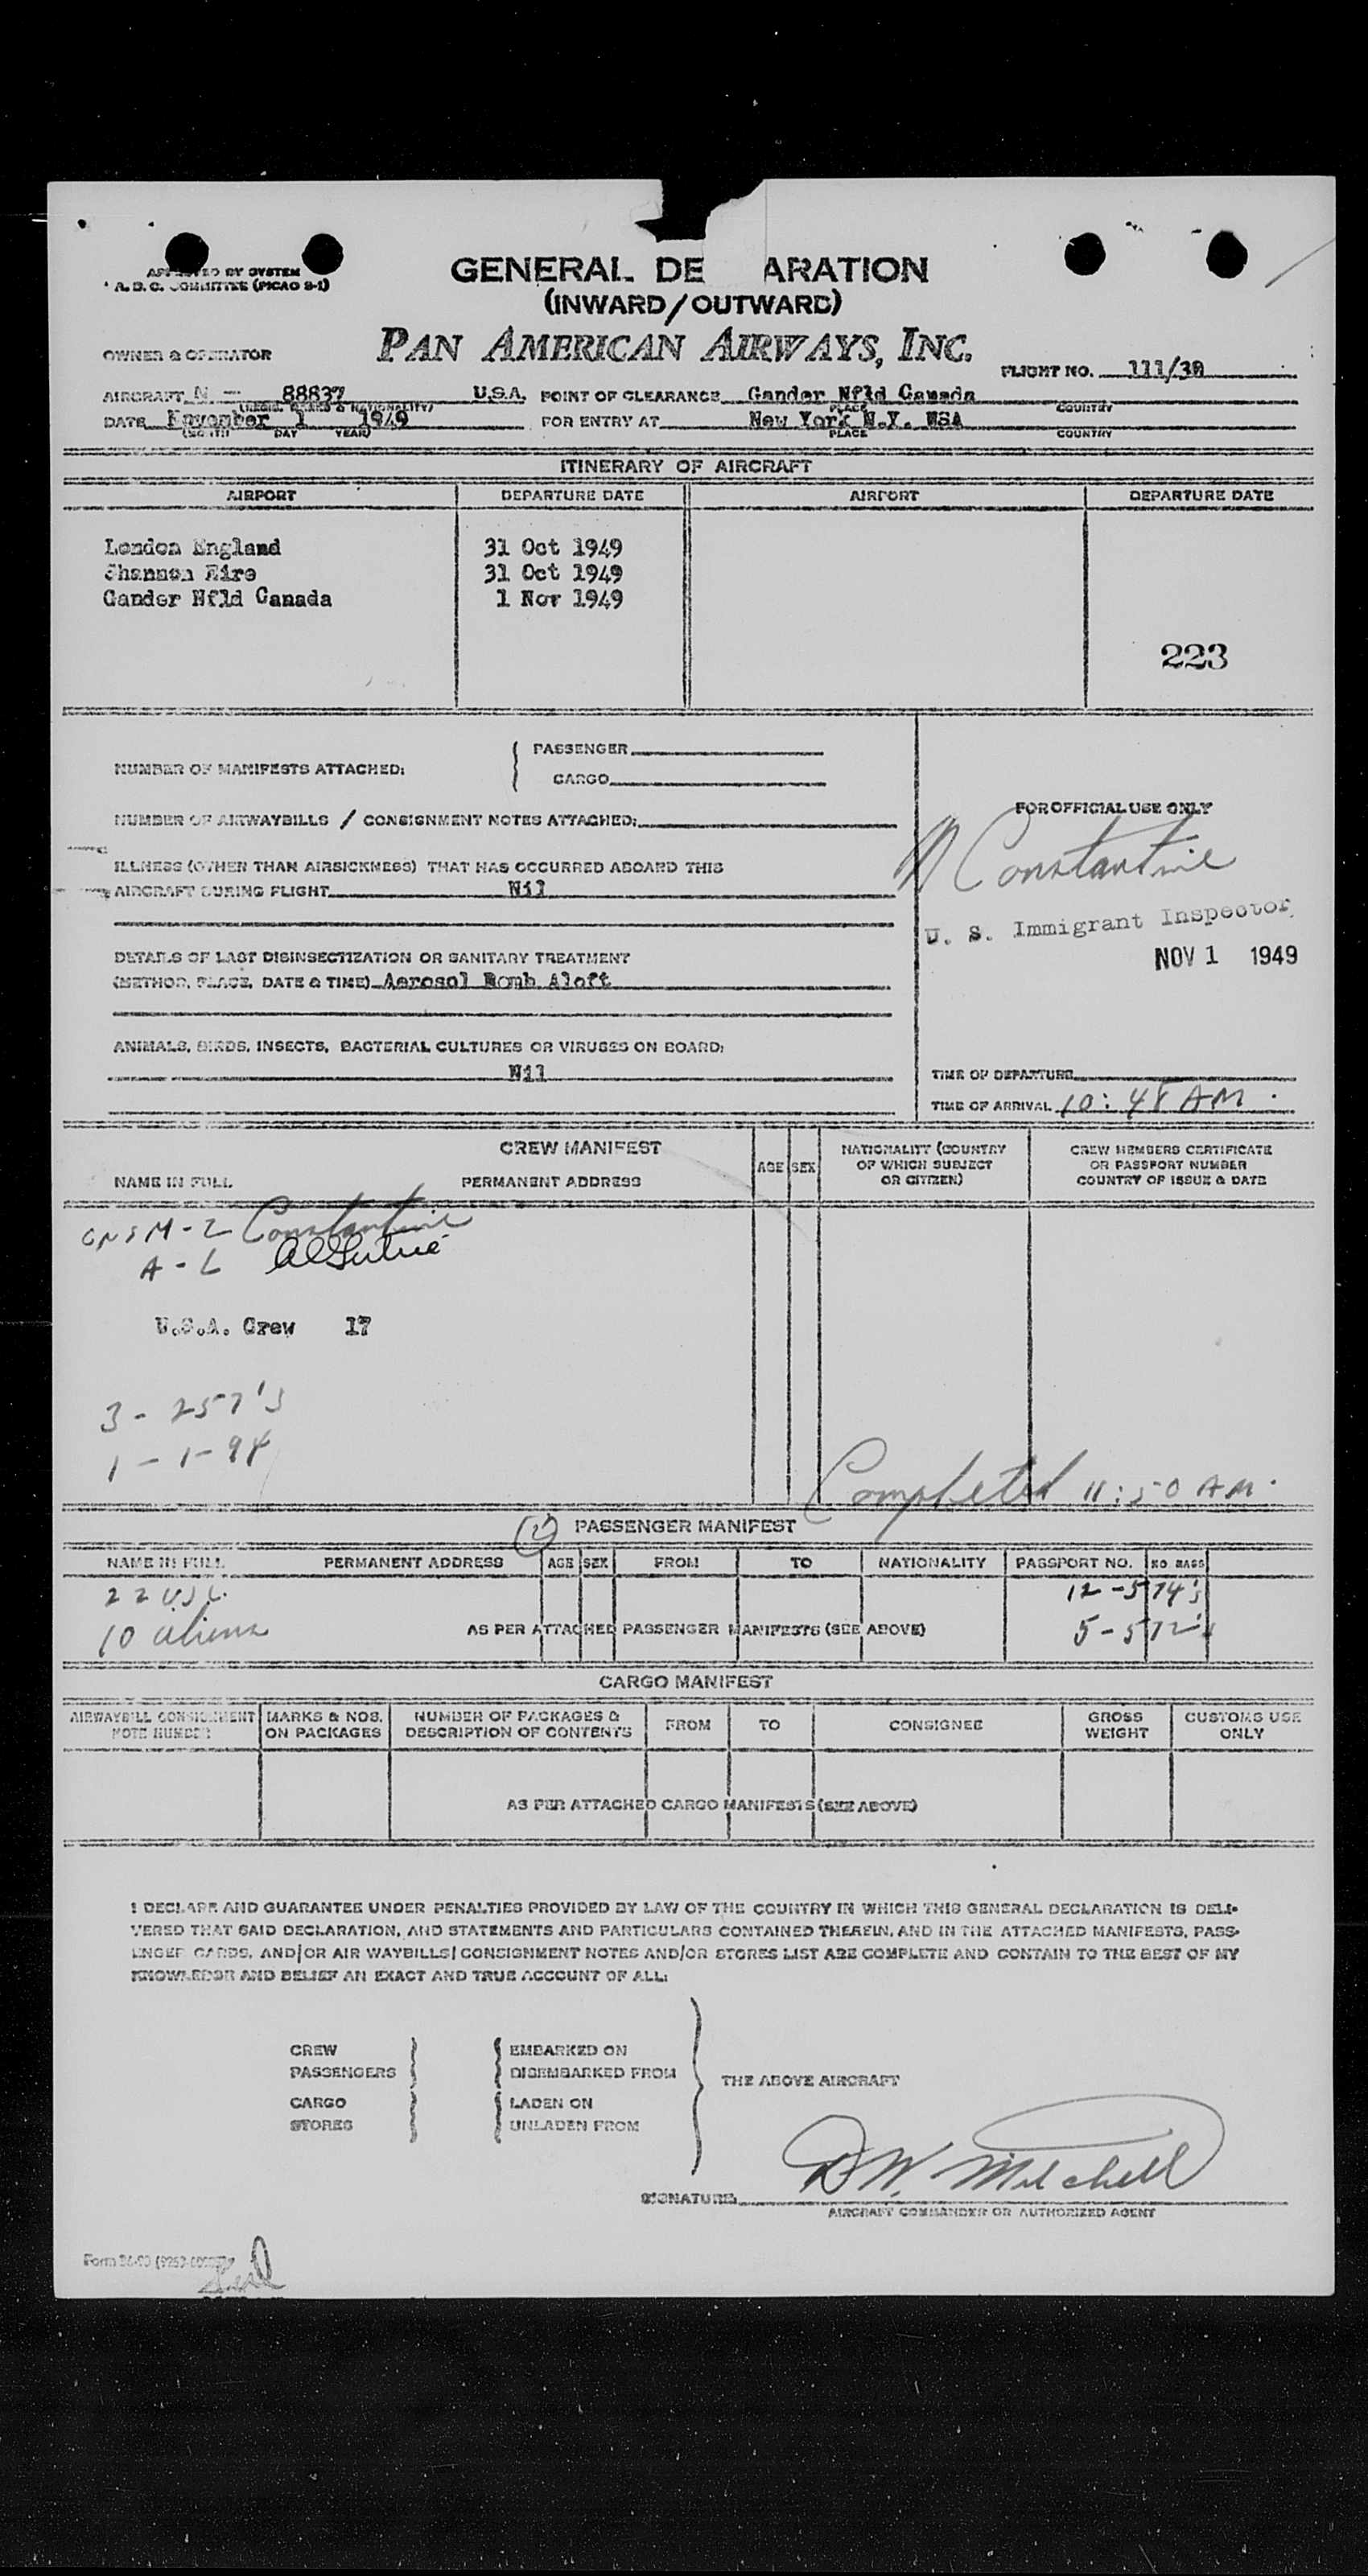 BY SYSTEM
A. D. C. COMMITTEE (PICAO 2-1)
GENERAL DE ARATION
(INWARD/OUTWARD)
OWNER & OPERATOR PAN AMERICAN AIRWAYS, INC.
FLIGHT NO. 111/30
AIRCRAFT N - 88837 U.S.A. POINT OF CLEARANCE Gander Nfld Canada
(REGIS. MARKS & NATIONALITY) PLACE COUNTRY
DATE November 1 1949 FOR ENTRY AT New York N.Y. USA
(MONTH DAY YEAR) PLACE COUNTRY
ITINERARY OF AIRCRAFT
AIRPORT DEPARTURE DATE AIRPORT DEPARTURE DATE
London England 31 Oct 1949
Shannon Eire 31 Oct 1949
Gander Nfld Canada 1 Nov 1949
223
NUMBER OF MANIFESTS ATTACHED: { PASSENGER
CARGO
NUMBER OF AIRWAYBILLS / CONSIGNMENT NOTES ATTACHED:
ILLNESS (OTHER THAN AIRSICKNESS) THAT HAS OCCURRED ABOARD THIS
AIRCRAFT DURING FLIGHT Nil
DETAILS OF LAST DISINSECTIZATION OR SANITARY TREATMENT
(METHOD, PLACE, DATE & TIME) Aerosol Bomb Aloft
ANIMALS, BIRDS, INSECTS, BACTERIAL CULTURES OR VIRUSES ON BOARD:
Nil
FOR OFFICIAL USE ONLY
Constantine
U. S. Immigrant Inspector
NOV 1 1949
TIME OF DEPARTURE
TIME OF ARRIVAL 10:48 AM.
CREW MANIFEST
NAME IN FULL PERMANENT ADDRESS AGE SEX NATIONALITY (COUNTRY OF WHICH SUBJECT OR CITIZEN) CREW MEMBERS CERTIFICATE OR PASSPORT NUMBER COUNTRY OF ISSUE & DATE
Constantine
A - L
U.S.A. Crew 17
3 - 257's
1 - 1-94
Completed 11:50 AM.
PASSENGER MANIFEST
NAME IN FULL PERMANENT ADDRESS AGE SEX FROM TO NATIONALITY PASSPORT NO. NO. BAGS
22 USC. 12-574's
10 aliens AS PER ATTACHED PASSENGER MANIFESTS (SEE ABOVE) 5-572's
CARGO MANIFEST
AIRWAYBILL CONSIGNMENT NOTE NUMBER MARKS & NOS. ON PACKAGES NUMBER OF PACKAGES & DESCRIPTION OF CONTENTS FROM TO CONSIGNEE GROSS WEIGHT CUSTOMS USE ONLY
AS PER ATTACHED CARGO MANIFESTS (SEE ABOVE)
I DECLARE AND GUARANTEE UNDER PENALTIES PROVIDED BY LAW OF THE COUNTRY IN WHICH THIS GENERAL DECLARATION IS DELI-
VERED THAT SAID DECLARATION, AND STATEMENTS AND PARTICULARS CONTAINED THEREIN, AND IN THE ATTACHED MANIFESTS, PASS-
ENGER CARDS, AND/OR AIR WAYBILLS/CONSIGNMENT NOTES AND/OR STORES LIST ARE COMPLETE AND CONTAIN TO THE BEST OF MY
KNOWLEDGE AND BELIEF AN EXACT AND TRUE ACCOUNT OF ALL:
CREW EMBARKED ON
PASSENGERS DISEMBARKED FROM
THE ABOVE AIRCRAFT
CARGO LADEN ON
STORES UNLADEN FROM
SIGNATURE D W. Mitchell
AIRCRAFT COMMANDER OR AUTHORIZED AGENT
Form